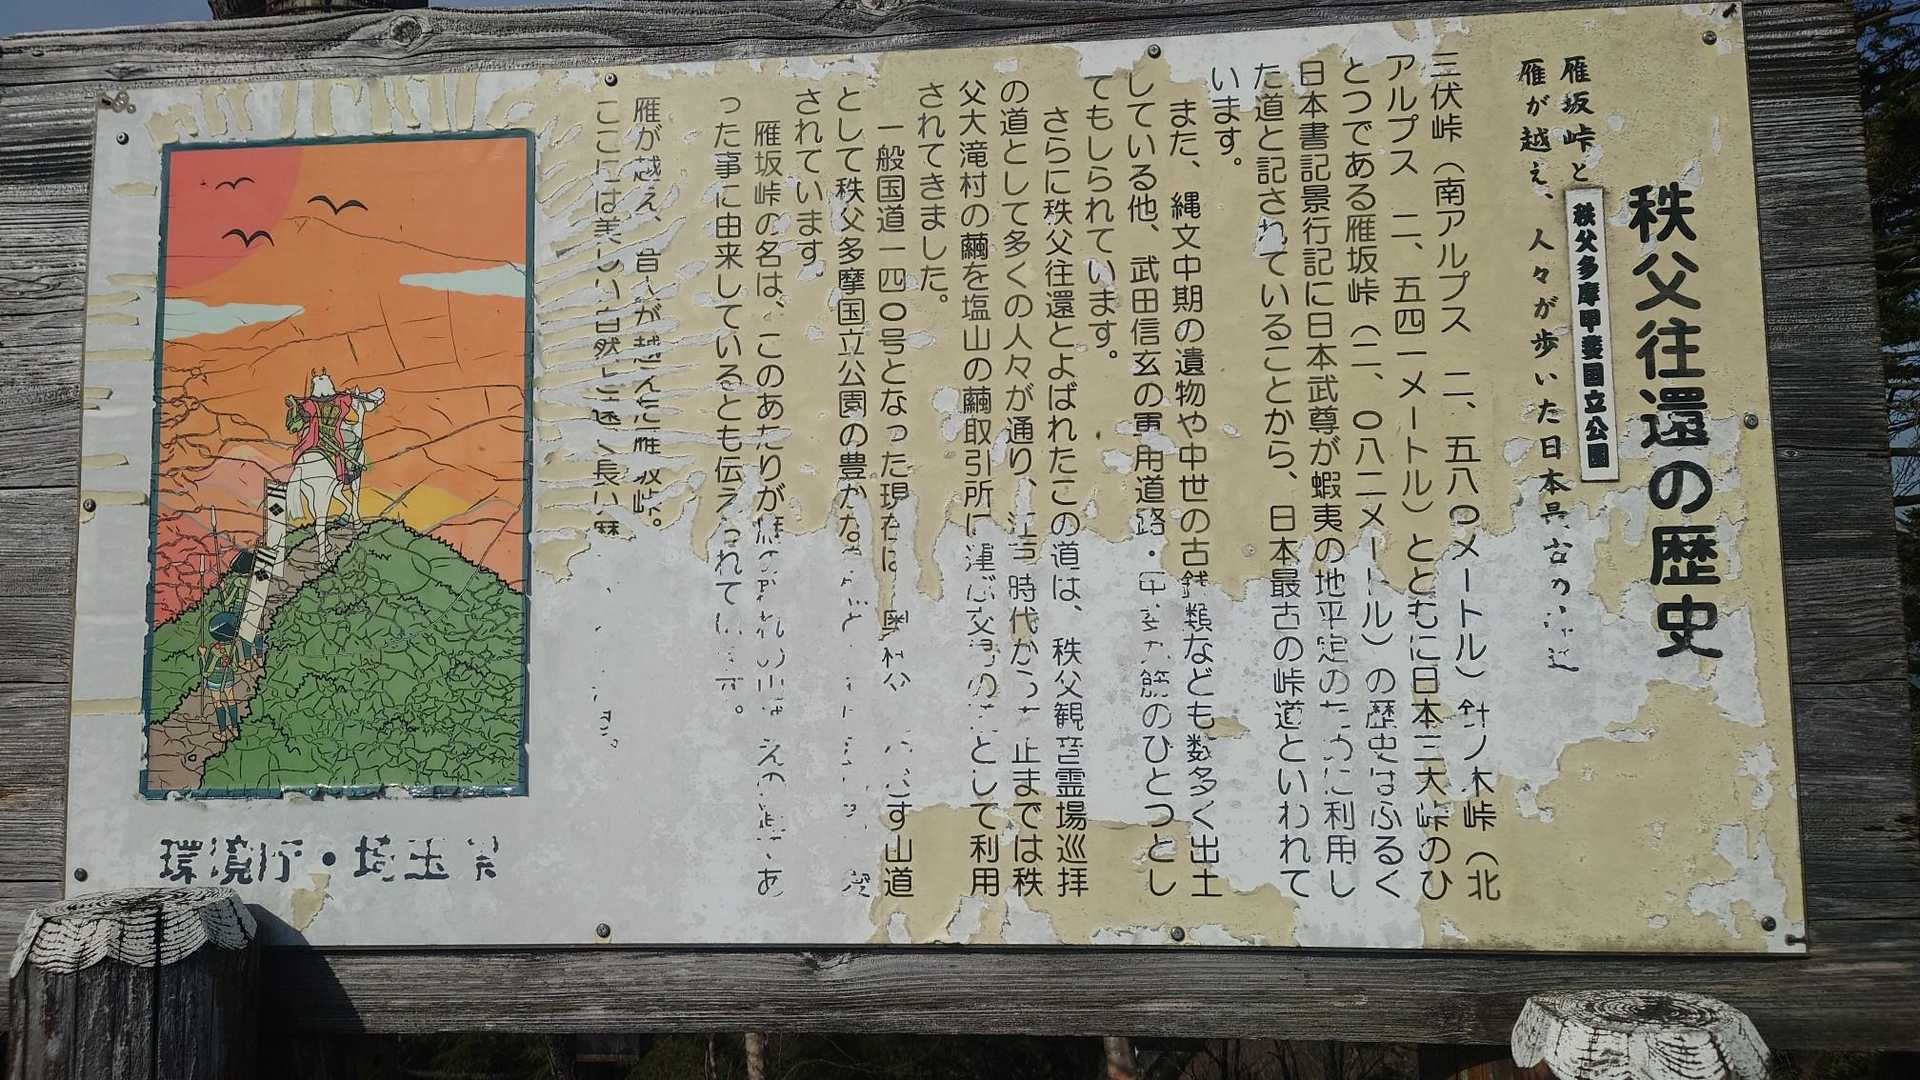 秩父往還の歴史
秩父多摩甲斐国立公園
雁坂峠と
雁が越え、人々が歩いた日本最古の
三伏峠（南アルプス 二、五八〇メートル）針ノ木峠（北
アルプス 二、五四一メートル）とともに日本三大峠のひ
とつである雁坂峠（二、〇八二メートル）の歴史はふるく
日本書記景行記に日本武尊が蝦夷の地平定のために利用し
た道と記されていることから、日本最古の峠道といわれて
います。
また、縄文中期の遺物や中世の古銭類なども数多く出土
している他、武田信玄の軍用道路・甲斐九筋のひとつとし
てもしられています。
さらに秩父往還とよばれたこの道は、秩父観音霊場巡拝
の道として多くの人々が通り、江戸時代から大正までは秩
父大滝村の繭を塩山の繭取引所に運ぶ交易の道として利用
されてきました。
一般国道一四〇号となった現在は、奥秩父 す山道
として秩父多摩国立公園の豊かな
されています。
雁坂峠の名は、このあたりが雁の群れの山越えの道であ
った事に由来しているとも伝えられています。
雁が越え、昔人が越えた雁坂峠。
ここには美しい自然と遠く長い歴
環境庁・埼玉県